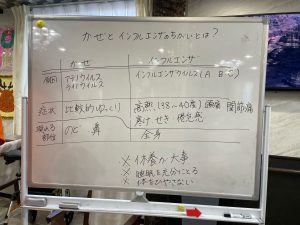 かぜとインフルエンザのちがいとは?
かぜ インフルエンザ
原因 アデノウイルス インフルエンザウイルス(A B C)
ライノウイルス
症状 比較的ゆっくり 高熱(38〜40度)頭痛 関節痛
寒け せき 倦怠感
現れる部位 のど 鼻 全身
※休養が大事
※睡眠を充分にとる
※体をひやさない